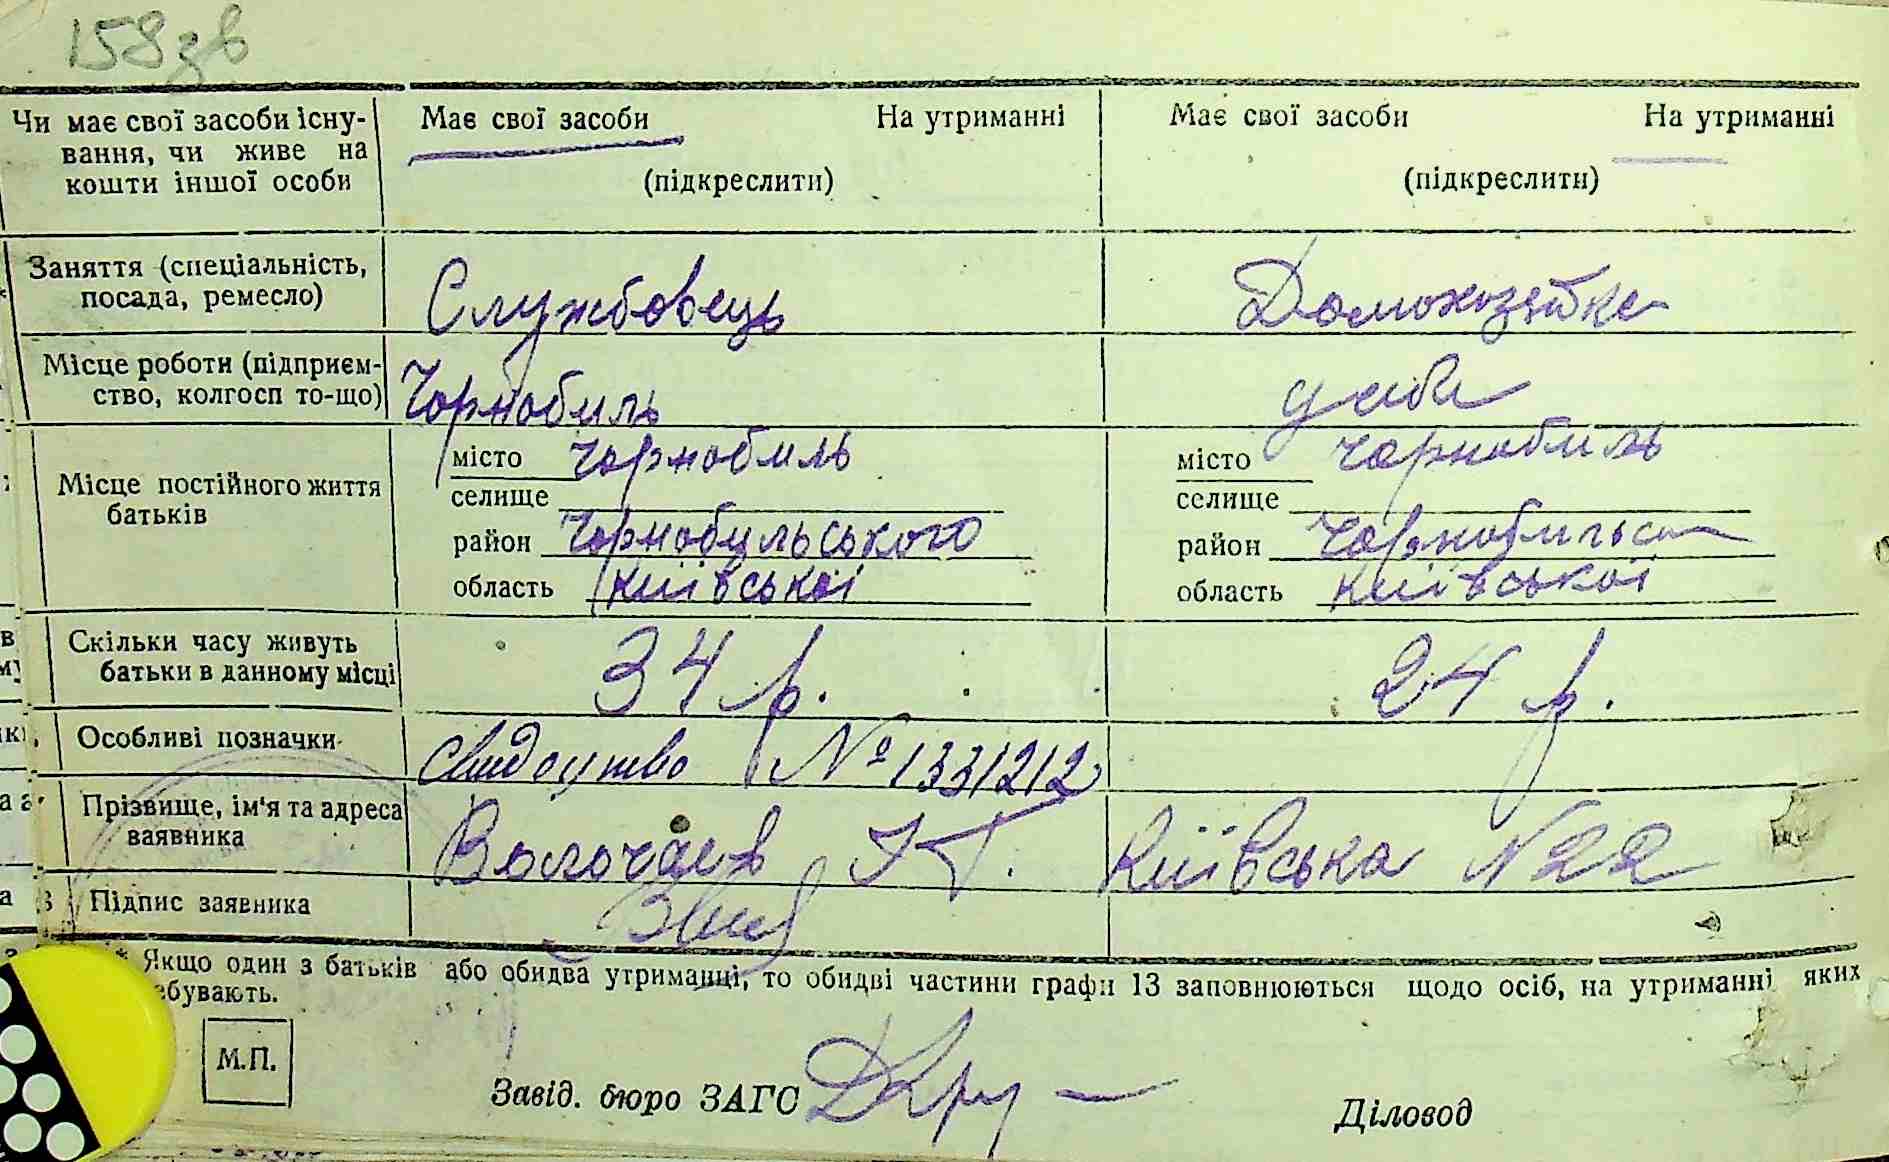 158 зв
Чи має свої засоби існу-
вання, чи живе на
кошти іншої особи
Має свої засоби На утриманні
(підкреслити)
Має свої засоби На утриманні
(підкреслити)
Заняття (спеціальність,
посада, ремесло)
Службовець
Домохозяйка
Місце роботи (підприєм-
ство, колгосп то-що)
Чорнобиль
удома
Місце постійного життя
батьків
місто Чорнобиль
селище
район Чорнобильського
область Київської
місто Чорнобиль
селище
район Чорнобильськ
область Київської
Скільки часу живуть
батьки в данному місці
34 р.
24 р.
Особливі позначки
свидоцтво № 1331212
Прізвище, ім'я та адреса
заявника
Волочаєв І Г. Київська N 22
Підпис заявника
* Якщо один з батьків або обидва утриманці, то обидві частини графи 13 заповнюються щодо осіб, на утриманні яких
ебувають.
М.П.
Завід. бюро ЗАГС
Діловод